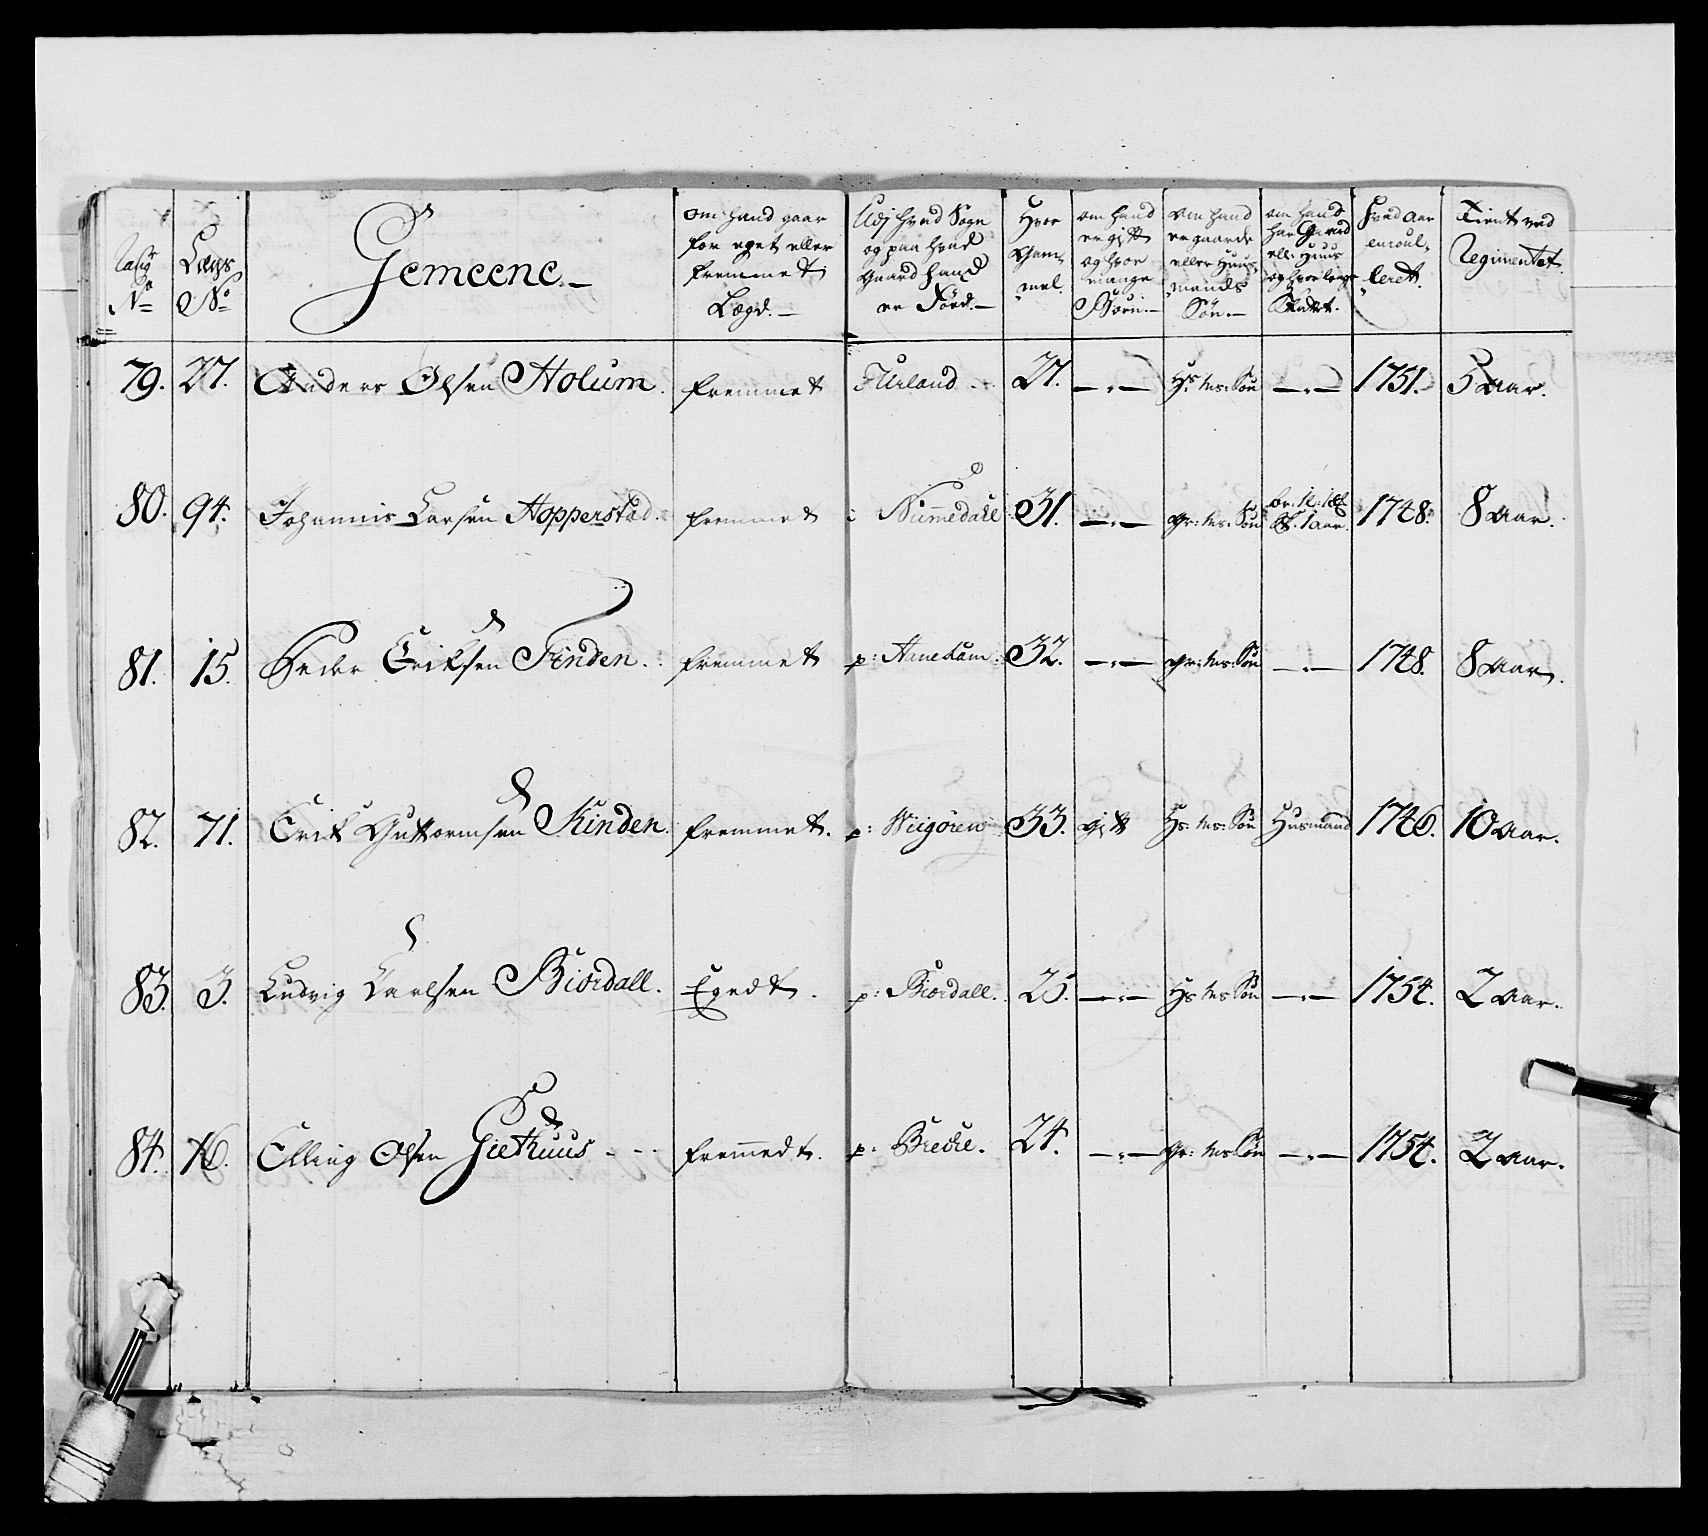 Gemeene.
Lægs No
om hand gaar for eget eller fremmet Lægd.
Udj hvad Sogn og paa hvad Gaard hand er Fød.
Hvor Gammel.
om hand er gift og hvor mange Børn.
om hand er gaards eller Huusmands Søn.
om hand har Gaard ell. Huus og hvor længe
Hvad Aar enroulleret.
Tient ved Regimentet
79. 27. Anders Olsen Holum. fremmet i Urland 27. Hs: Ms: Søn 1751. 5 Aar.
80. 94. Johannis Larsen Hopperstad. fremmet i Nummedall 31. gr: Ms: Søn 1 aar. 1748. 8 Aar.
81. 15. Peder Eriksen Finden. fremmet p: Hanekam. 32. gr: Ms: Søn 1748. 8 Aar.
82. 71. Erik Guttormsen Kinden. fremmet. p: Wigøren 33. gift Hs: Ms: Søn Husmand 1746. 10 Aar.
83. 3. Ludvig Carlsen Biordall. Egedt. p: Biordall. 25. Hs Ms Søn 1754. 2 Aar.
84. 76. Elling Olsen Giethuus fremmedt. p: Brecke. 24. gr: Ms: Søn 1754. 2 Aar.